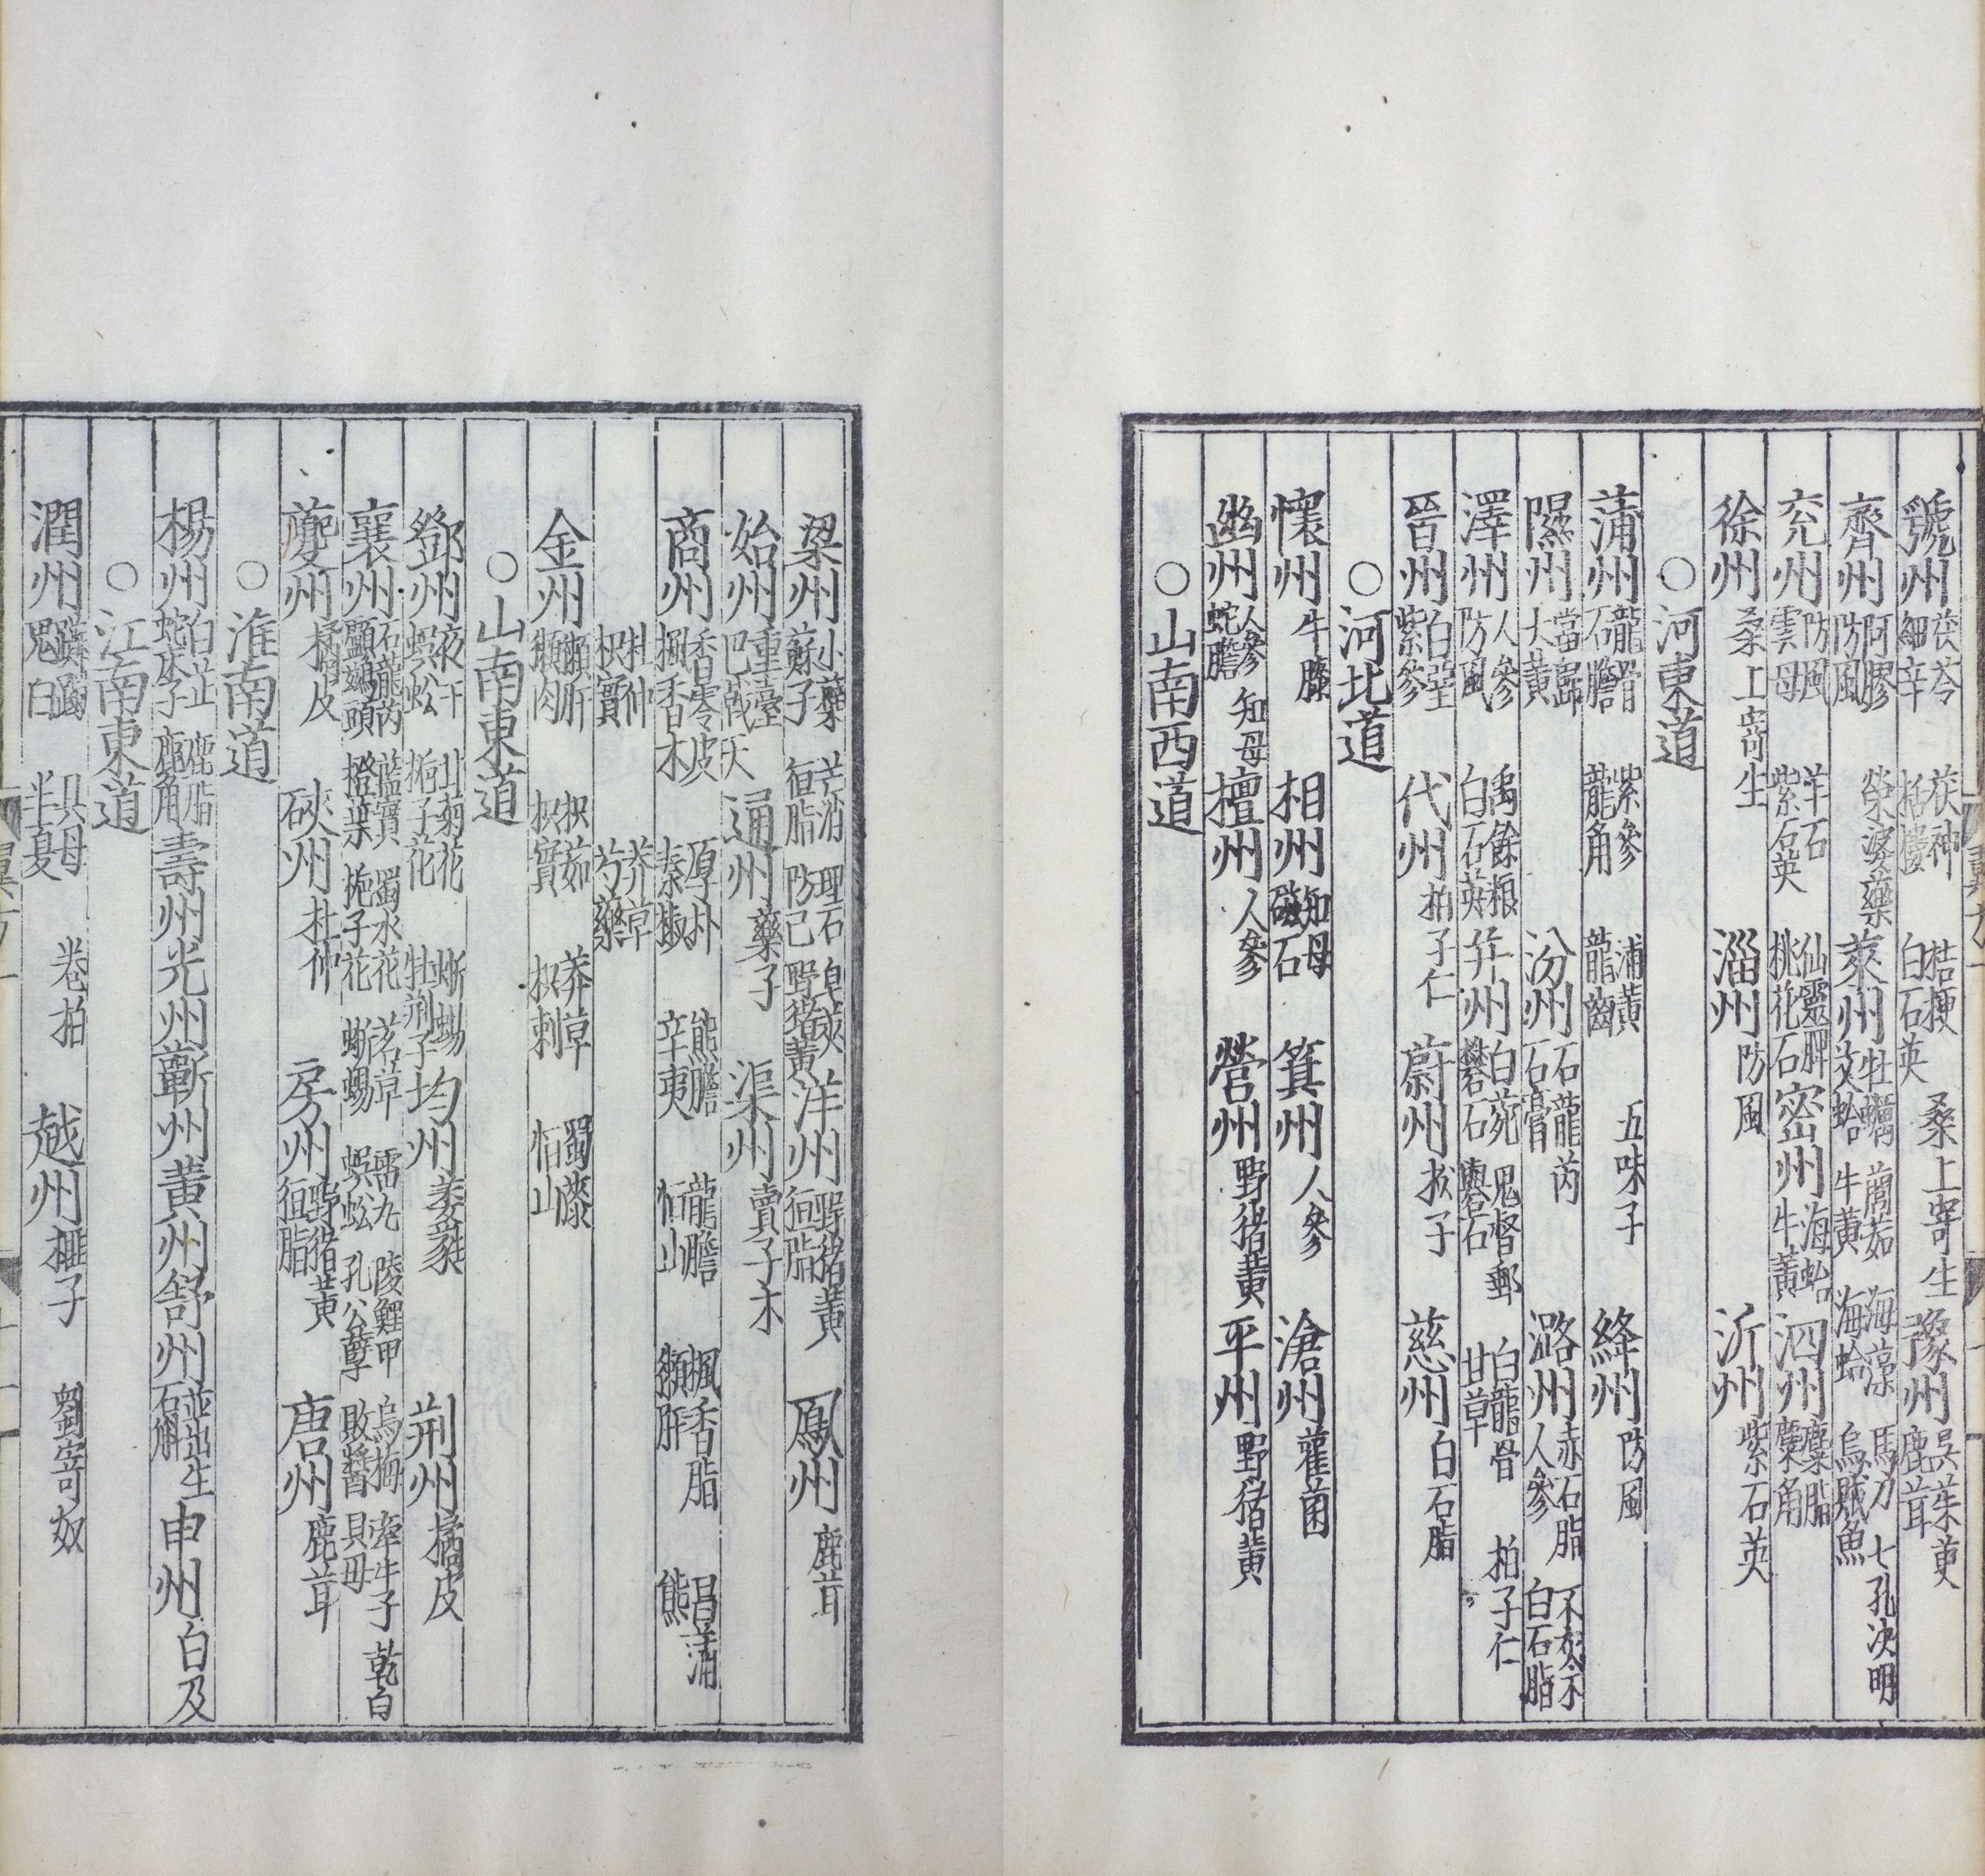 虢州茯苓細辛 茯神栝樓 桔梗白石英 桑上寄生豫州吳茱萸鹿茸
齊州阿膠防風 榮婆藥萊州牡蠣文蛤 䕡茹牛黃 海藻海蛤 馬刀烏賊魚 七孔决明
兖州防風雲母 羊石紫石英 仙靈脾桃花石密州海蛤牛黃泗州麋脂麋角
徐州桑上寄生 淄州防風 沂州紫石英
○河東道
蒲州龍骨石膽 紫參龍角 蒲黃龍齒 五味子 絳州防風
隰州當歸大黃 汾州石龍芮石膏 潞州赤石脂人參 不灰木白石脂
澤州人參防風 禹餘粮白石英并州白菀礬石 鬼督郵礜石 白龍骨甘草 柏子仁
晉州白堊紫參 代州柏子仁 蔚州松子 慈州白石脂
○河北道
懷州牛膝 相州知母磁石 箕州人參 滄州藋菌
幽州人參蛇膽 知母檀州人參 營州野猪黃 平州野猪黃
○山南西道
梁州小蘗蘇子 芒消狟脂 理石防己 皂莢野猪黃洋州野猪黃狟脂 鳳州鹿茸
始州重臺巴戟天 通州藥子 渠州賣子木
商州香零皮楓香木 厚朴秦椒 熊膽辛夷 龍膽恒山 楓香脂獺肝 昌蒲熊
杜仲枳實 莽草芍藥
金州獺肝獺肉 枳茹枳實 莽草枳刺 蜀漆恒山
○山南東道
鄧州夜干蜈蚣 甘菊花梔子花 蜥蜴牡荊子均州萎蕤 荊州橘皮
襄州石龍芮鸕鷀頭 藍實橙葉 蜀水花梔子花 茗草蜥蜴 雷丸蜈蚣 陵鯉甲孔公孽 烏梅敗醬 牽牛子貝母 乾白
夔州橘皮 硤州杜仲 房州野猪黃狟脂 唐州鹿茸
○淮南道
楊州白芷蛇床子 鹿脂鹿角壽州光州蘄州黃州舒州並出生石斛申州白及
○江南東道
潤州鬼白 貝母半夏 卷柏 越州榧子 劉寄奴